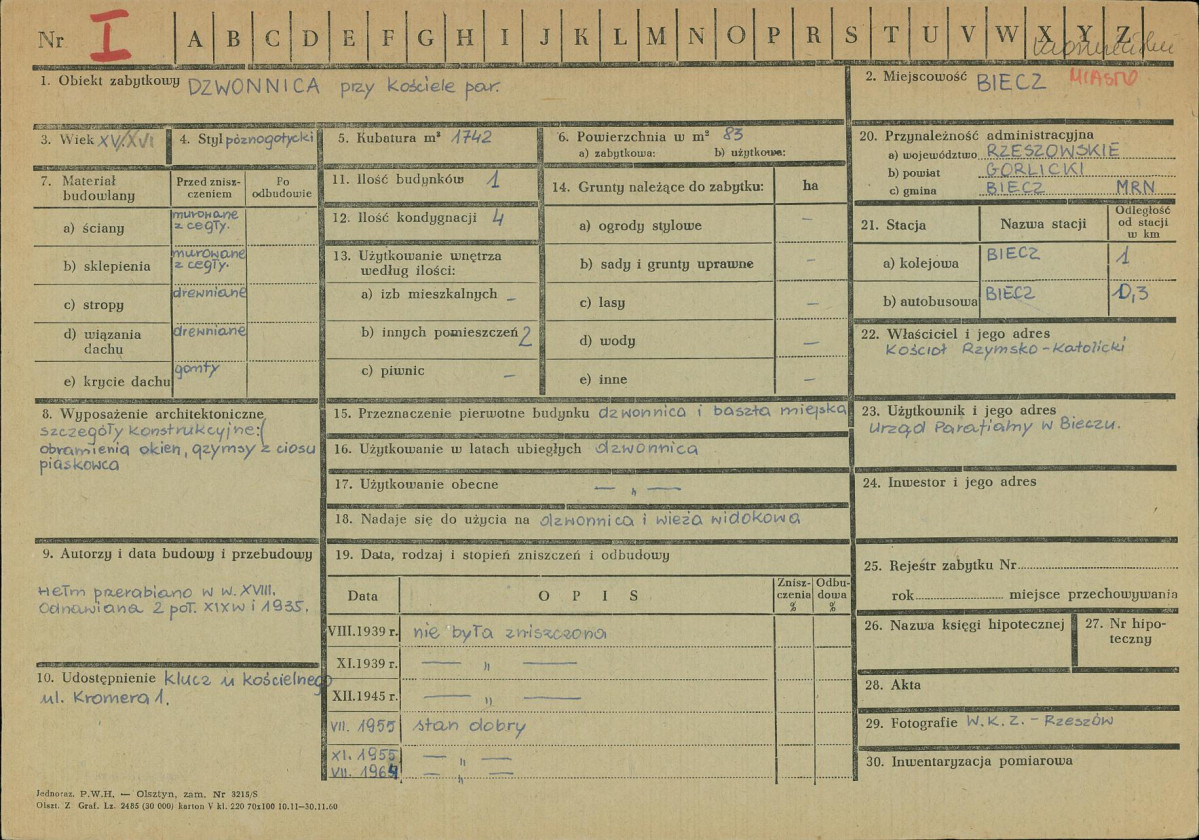 Nr I A B C D E F G H I J K L M N O P R S T U V W X Y Z
1. Obiekt zabytkowy DZWONNICA przy kościele par.
2. Miejscowość BIECZ MIASTO
3. Wiek XV/XVI
4. Styl późnogotycki
5. Kubatura m³ 1742
6. Powierzchnia w m² 83
a) zabytkowa: b) użytkowa:
20. Przynależność administracyjna
a) województwo RZESZOWSKIE
b) powiat GORLICKI
c) gmina BIECZ MRN
7. Materiał budowlany
Przed zniszczeniem
Po odbudowie
a) ściany murowane z cegły.
b) sklepienia murowane z cegły.
c) stropy drewniane
d) wiązania dachu drewniane
e) krycie dachu gonty
11. Ilość budynków 1
12. Ilość kondygnacji 4
13. Użytkowanie wnętrza
według ilości:
a) izb mieszkalnych –
b) innych pomieszczeń 2
c) piwnic –
14. Grunty należące do zabytku: ha
a) ogrody stylowe –
b) sady i grunty uprawne –
c) lasy –
d) wody –
e) inne –
21. Stacja Nazwa stacji Odległość od stacji w km
a) kolejowa BIECZ 1
b) autobusowa BIECZ 0,3
22. Właściciel i jego adres
Kościół Rzymsko-Katolicki
8. Wyposażenie architektoniczne
szczegóły konstrukcyjne:(
obramienia okien, gzymsy z ciosu
piaskowca
15. Przeznaczenie pierwotne budynku dzwonnica i baszta miejska
16. Użytkowanie w latach ubiegłych dzwonnica
17. Użytkowanie obecne — „ —
18. Nadaje się do użycia na dzwonnica i wieża widokowa
23. Użytkownik i jego adres
Urząd Parafialny w Bieczu.
24. Inwestor i jego adres
9. Autorzy i data budowy i przebudowy
Hełm przerabiano w w. XVIII.
Odnawiana 2 poł. XIX w i 1935.
10. Udostępnienie klucz u kościelnego
ul. Kromera 1.
19. Data, rodzaj i stopień zniszczeń i odbudowy
Data OPIS Zniszczenia % Odbudowa %
VIII.1939 r. nie była zniszczona
XI.1939 r. — „ —
XII.1945 r. — „ —
VII. 1955 stan dobry
XI. 1955 — „ —
VII. 1964 — „ —
25. Rejestr zabytku Nr
rok miejsce przechowywania
26. Nazwa księgi hipotecznej
27. Nr hipoteczny
28. Akta
29. Fotografie W.K.Z. – Rzeszów
30. Inwentaryzacja pomiarowa
Jednoraz. P.W.H. — Olsztyn, zam. Nr 3215/S
Olszt. Z Graf. Lz. 2485 (30 000) karton V kl. 220 70x100 10.11—30.11.60